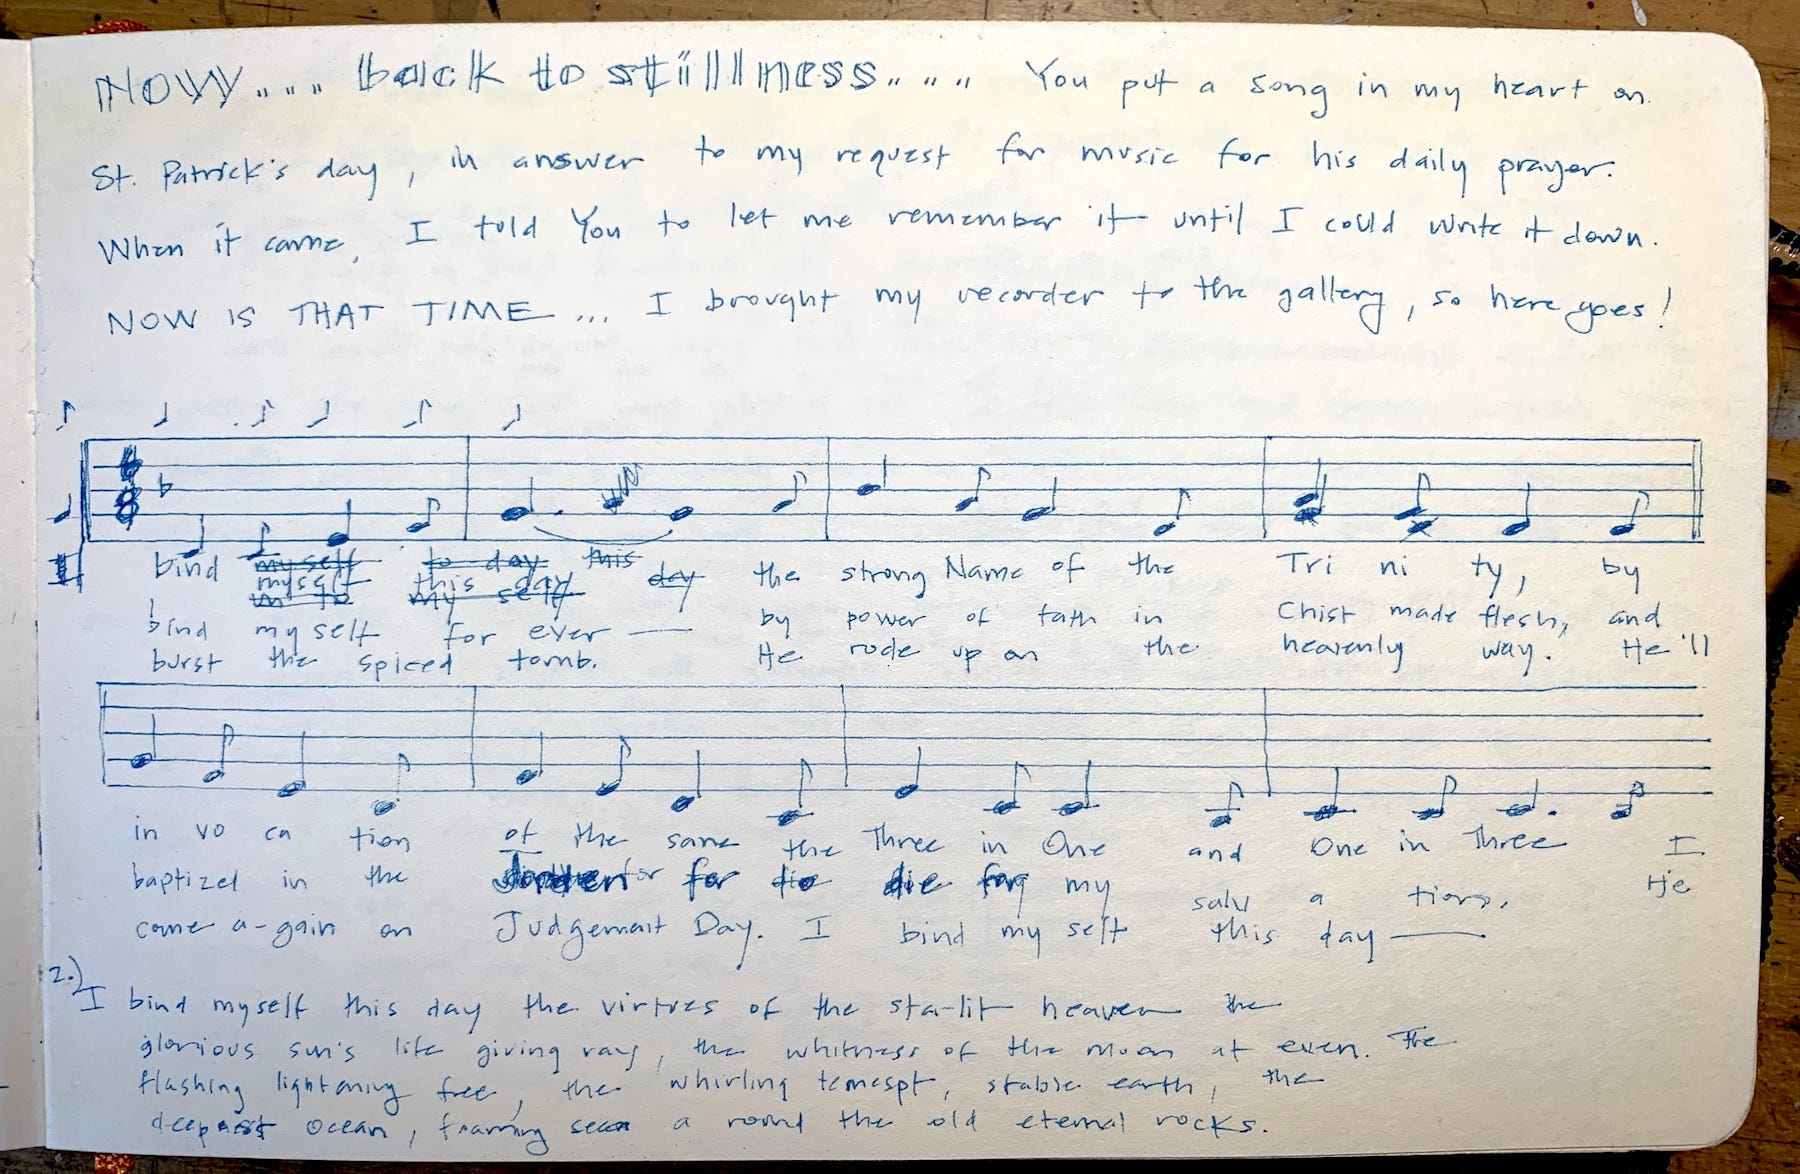 NOW.... back to stillness.... You put a song in my heart on
St. Patrick's day, in answer to my request for music for his daily prayer.
When it came, I told You to let me remember it until I could write it down.
NOW IS THAT TIME ... I brought my recorder to the gallery, so here goes!
bind myself to day this day the strong Name of the Tri ni ty, by
myself this day
un to my self
bind my self for ever — by power of fath in Chist made flesh, and
burst the spiced tomb. He rode up on the heavenly way. He'll
in vo ca tion of the same the Three in One and One in Three I
baptized in the Jorden for for die die for my salv a tion. He
come a-gain on Judgement Day. I bind my self this day —
2.) I bind myself this day the virtues of the sta-lit heaven the
glorious sun's life giving ray, the whitness of the moon at even. The
flashing lightening free, the whirling temespt, stable earth, the
deepest ocean, foaming seea a round the old eternal rocks.